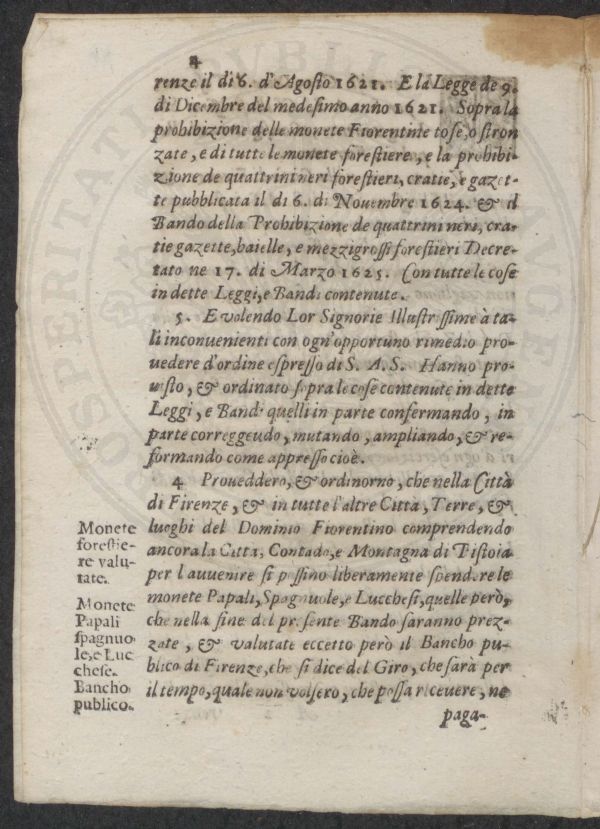 4
renze il dì 6. d'Agosto 1621. E la Legge de 9.
di Dicembre del medesimo anno 1621. Sopra la
prohibizione delle monete Fiorentine tose, o stron
zate, e di tutte le monete forestiere, e la prohibi-
zione de quattrini neri forestieri, cratie, e gazet-
te pubblicata il dì 6. di Nouembre 1624. & il
Bando della Prohibizione de quattrini neri, cra-
tie gazette, baielle, e mezzigrossi forestieri Decre-
tato ne 17. di Marzo 1625. Con tutte le cose
in dette Leggi, e Bandi contenute.
5. E volendo Lor Signorie Illustrissime à ta-
li inconuenienti con ogn'opportuno rimedio pro-
uedere d'ordine espresso di S. A. S. Hanno pro-
uisto, & ordinato sopra le cose contenute in dette
Leggi, e Bandi quelli in parte confermando, in
parte correggeudo, mutando, ampliando, & re-
formando come appresso cioè.
4 Proueddero, & ordinorno, che nella Città
di Firenze, & in tutte l'altre Citta, Terre, &
luoghi del Dominio Fiorentino comprendendo
ancora la Citta, Contado, e Montagna di Pistoia
per l'auuenire si possino liberamente spendere le
monete Papali, Spagnuole, e Lucchesi, quelle però,
che nella fine del presente Bando saranno prez-
zate, & valutate eccetto però il Bancho pu-
blico di Firenze, che si dice del Giro, che sarà per
il tempo, quale non volsero, che possa riceuere, ne
paga-
Monete
forestie-
re valu-
tate.
Monete
Papali
spagnuo
le, e Luc
chese.
Bancho
publico.